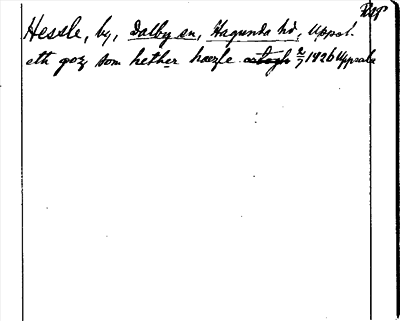 Hessle, by, Dalby sn, Hagunda hd, Uppsl.
eth goz som hether hæzle 2/7 1426 Uppsala